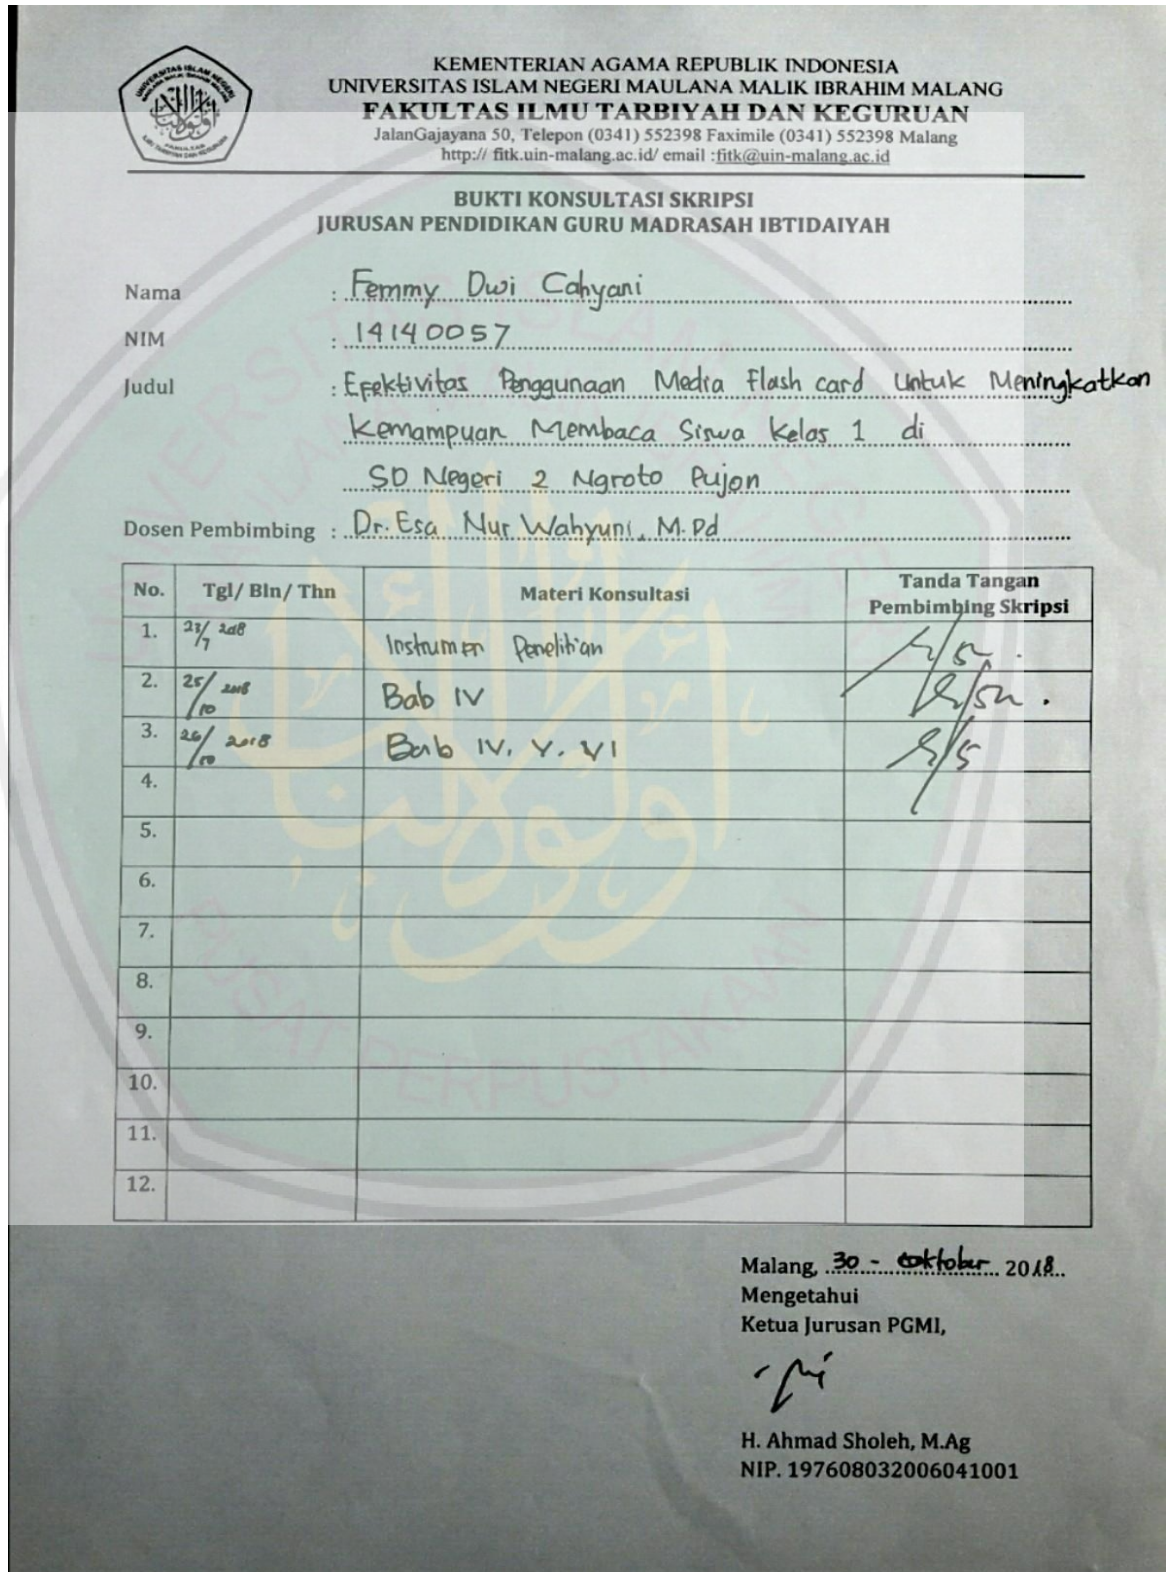 KEMENTERIAN AGAMA REPUBLIK INDONESIA
UNIVERSITAS ISLAM NEGERI MAULANA MALIK IBRAHIM MALANG
FAKULTAS ILMU TARBIYAH DAN KEGURUAN
JalanGajayana 50, Telepon (0341) 552398 Faximile (0341) 552398 Malang
http:// fitk.uin-malang.ac.id/ email :fitk@uin-malang.ac.id
BUKTI KONSULTASI SKRIPSI
JURUSAN PENDIDIKAN GURU MADRASAH IBTIDAIYAH
Nama : Femmy Dwi Cahyani
NIM : 14140057
Judul : Efektivitas Penggunaan Media Flash card Untuk Meningkatkan
Kemampuan Membaca Siswa Kelas 1 di
SD Negeri 2 Ngroto Pujon
Dosen Pembimbing : Dr. Esa Nur Wahyuni, M.Pd
No. Tgl/ Bln/ Thn Materi Konsultasi Tanda Tangan
Pembimbing Skripsi
1. 23/7 2018 Instrumen Penelitian
2. 25/10 2018 Bab IV
3. 26/10 2018 Bab IV. V. VI
4.
5.
6.
7.
8.
9.
10.
11.
12.
PUSAT PERPUSTAKAAN
Malang, 30 - oktober 2018
Mengetahui
Ketua Jurusan PGMI,
H. Ahmad Sholeh, M.Ag
NIP. 197608032006041001